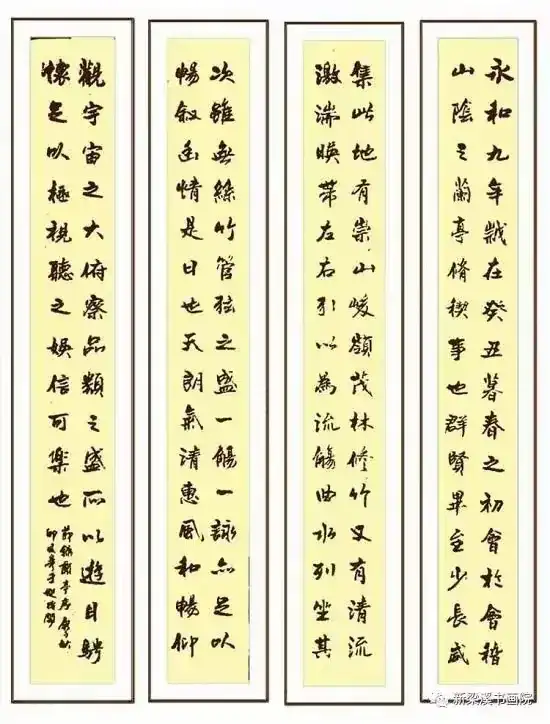 永和九年歲在癸丑暮春之初會於會稽
山陰之蘭亭脩稧事也群賢畢至少長咸
集此地有崇山峻嶺茂林修竹又有清流
激湍暎帶左右引以為流觴曲水列坐其
次雖無絲竹管弦之盛一觴一詠亦足以
暢敘幽情是日也天朗氣清惠風和暢仰
觀宇宙之大俯察品類之盛所以遊目騁
懷足以極視聽之娛信可樂也
節錄蘭亭序
新梁溪书画院